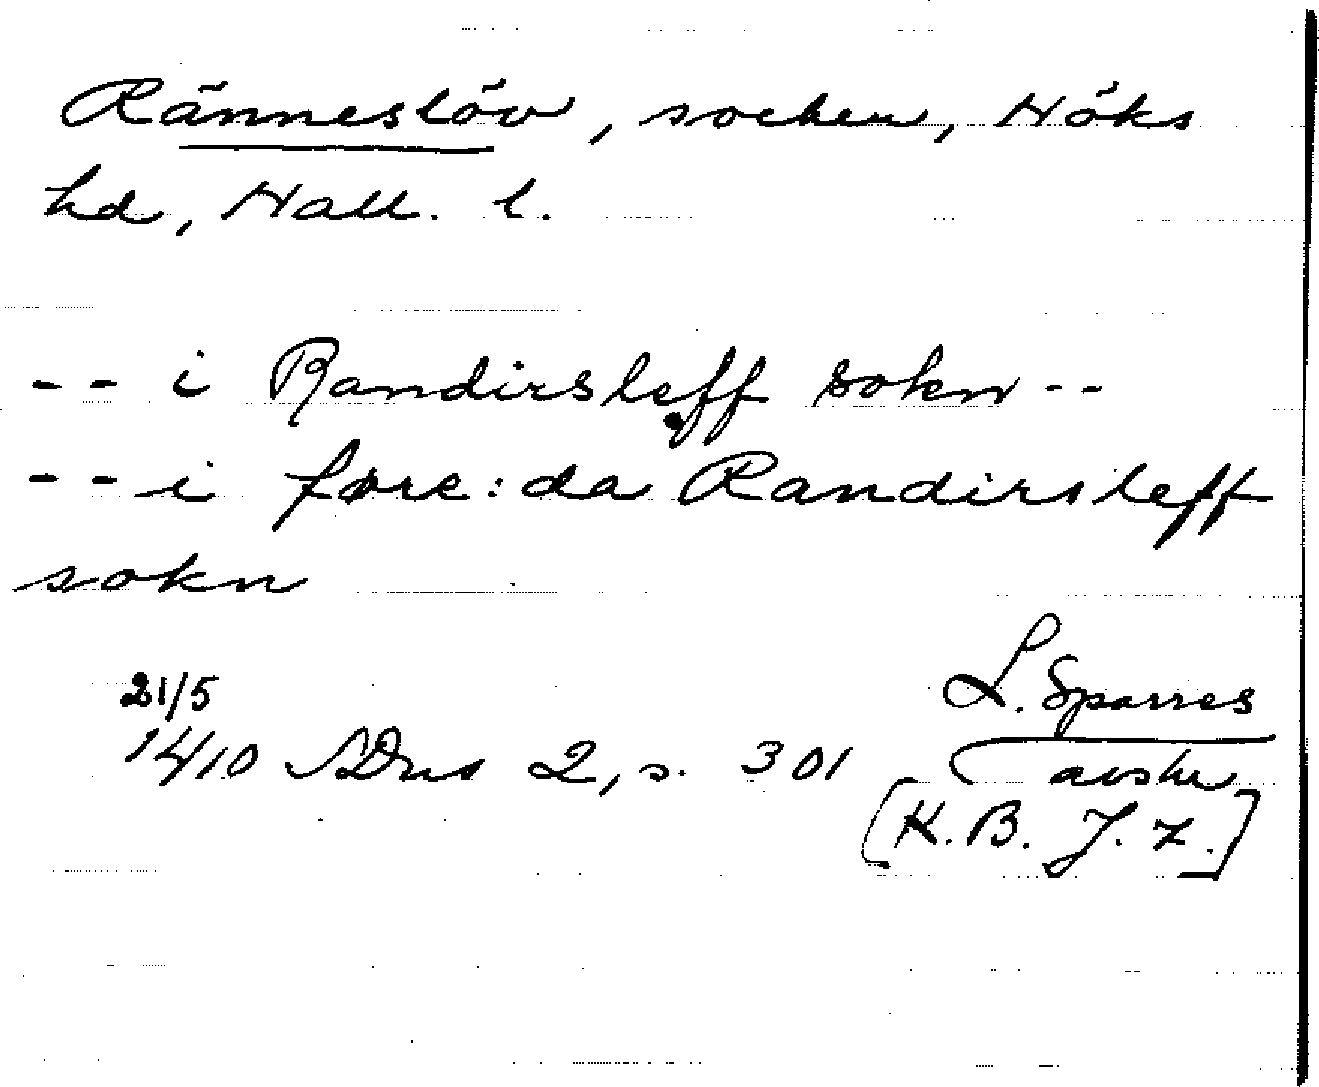 Ränneslöv, socken, Höks
hd, Hall. l.
-- i Randirsleff sokn --
-- i fore:da Randirsleff
sokn
21/5
1410 SDns 2, s. 301
L. Sparres
avskr
[K.B. J. 7.]